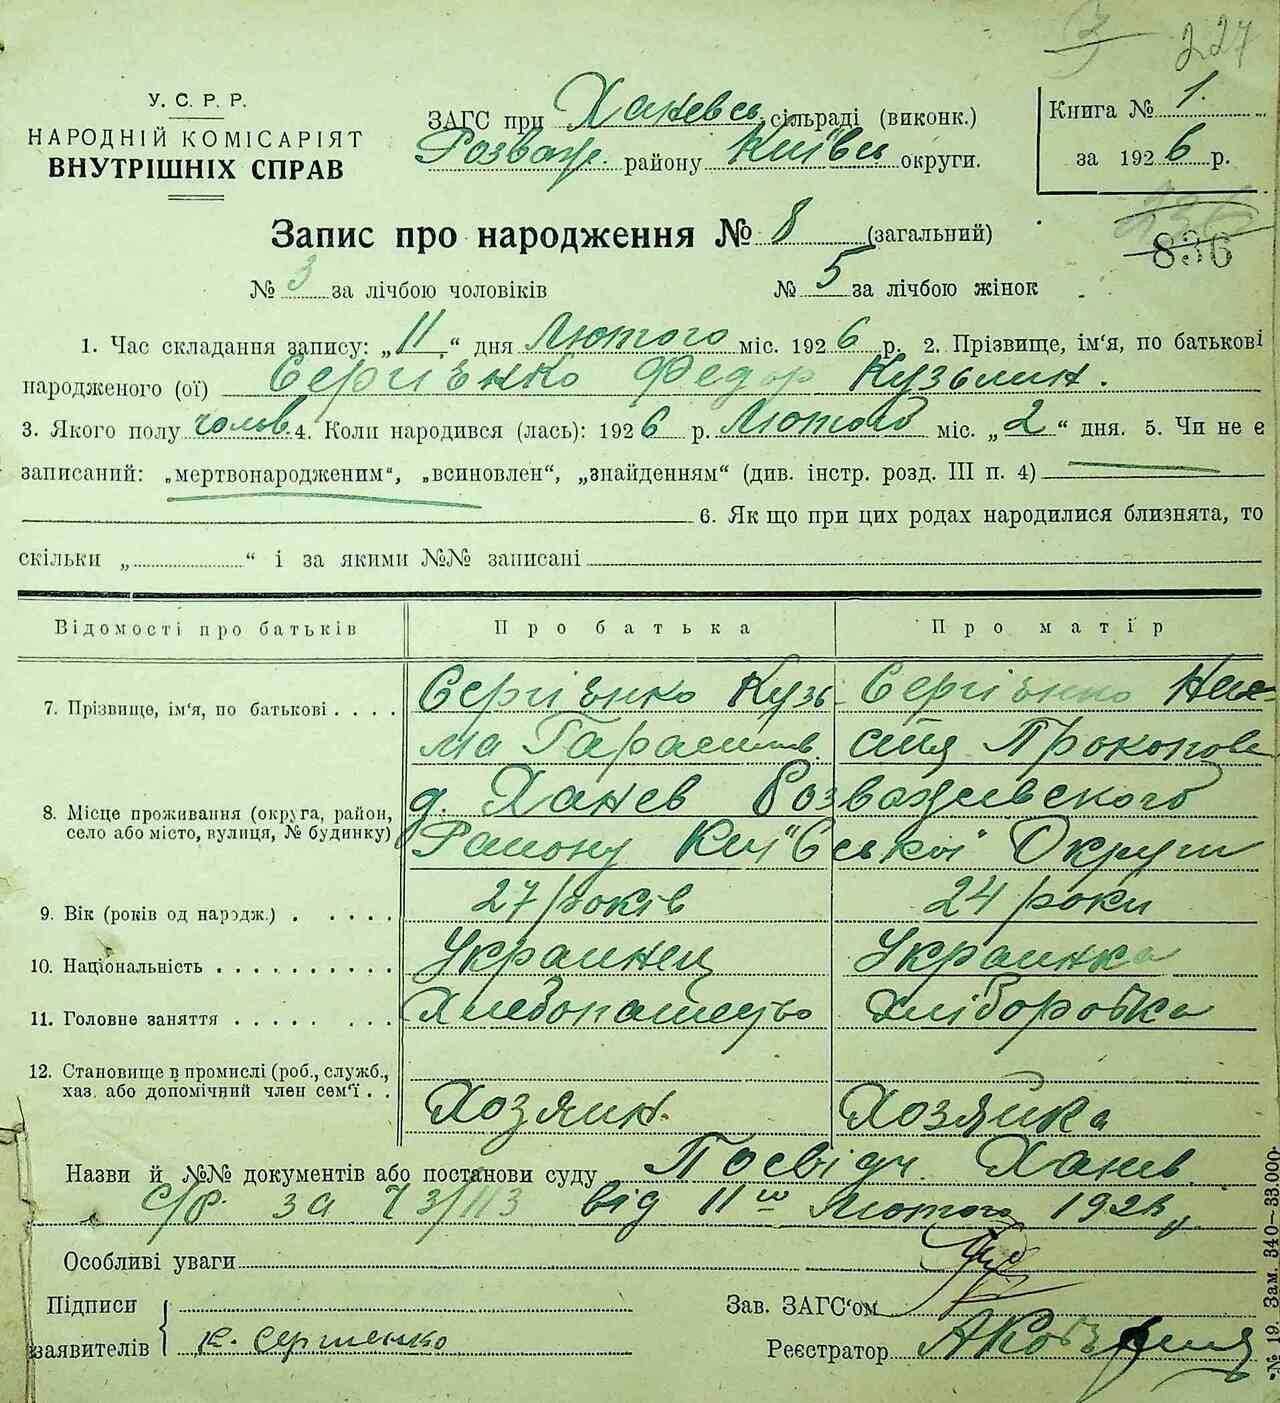 227
У. С. Р. Р.
НАРОДНІЙ КОМІСАРІЯТ
ВНУТРІШНІХ СПРАВ
ЗАГС при Ханевсь. сільраді (виконк.)
Розваж. району Київсь округи.
Книга № 1.
за 1926 р.
Запис про народження № 8 (загальний)
836
№ 3 за лічбою чоловіків № 5 за лічбою жінок
1. Час складання запису: „11“ дня Лютого міс. 1926 р. 2. Прізвище, ім'я, по батькові
народженого (ої) Сергієнко Федор Кузьмин.
3. Якого полу чолов. 4. Коли народився (лась): 1926 р. Лютого міс. „2“ дня. 5. Чи не є
записаний: „мертвонародженим“, „всиновлен“, „знайденням“ (див. інстр. розд. III п. 4)
6. Як що при цих родах народилися близнята, то
скільки „ “ і за якими №№ записані
Відомості про батьків Про батька Про матір
7. Прізвище, ім'я, по батькові . . . . Сергієнко Кузь- Сергієнко Нас-
ма Гарасимов. стя Прокопов
8. Місце проживання (округа, район,
село або місто, вулиця, № будинку)
д. Ханев Розважевского
Району Київської Округи
9. Вік (років од народж.) . . . . . 27 років 24 роки
10. Національність . . . . . . . . . . Украинец Украинка
11. Головне заняття . . . . . . . . Хлебопашество Хліборобка
12. Становище в промислі (роб., служб.,
хаз. або допомічний член сем'ї . .
Хозяин. Хозяйка
Назви й №№ документів або постанови суду Посвідч. Ханев.
с/р. за ч 3/113 від 11го Лютого 192
Особливі уваги
Підписи
заявителів К. Сергиенко
Зав. ЗАГС'ом
Реєстратор
№ 19. Зам. 340—33.000.